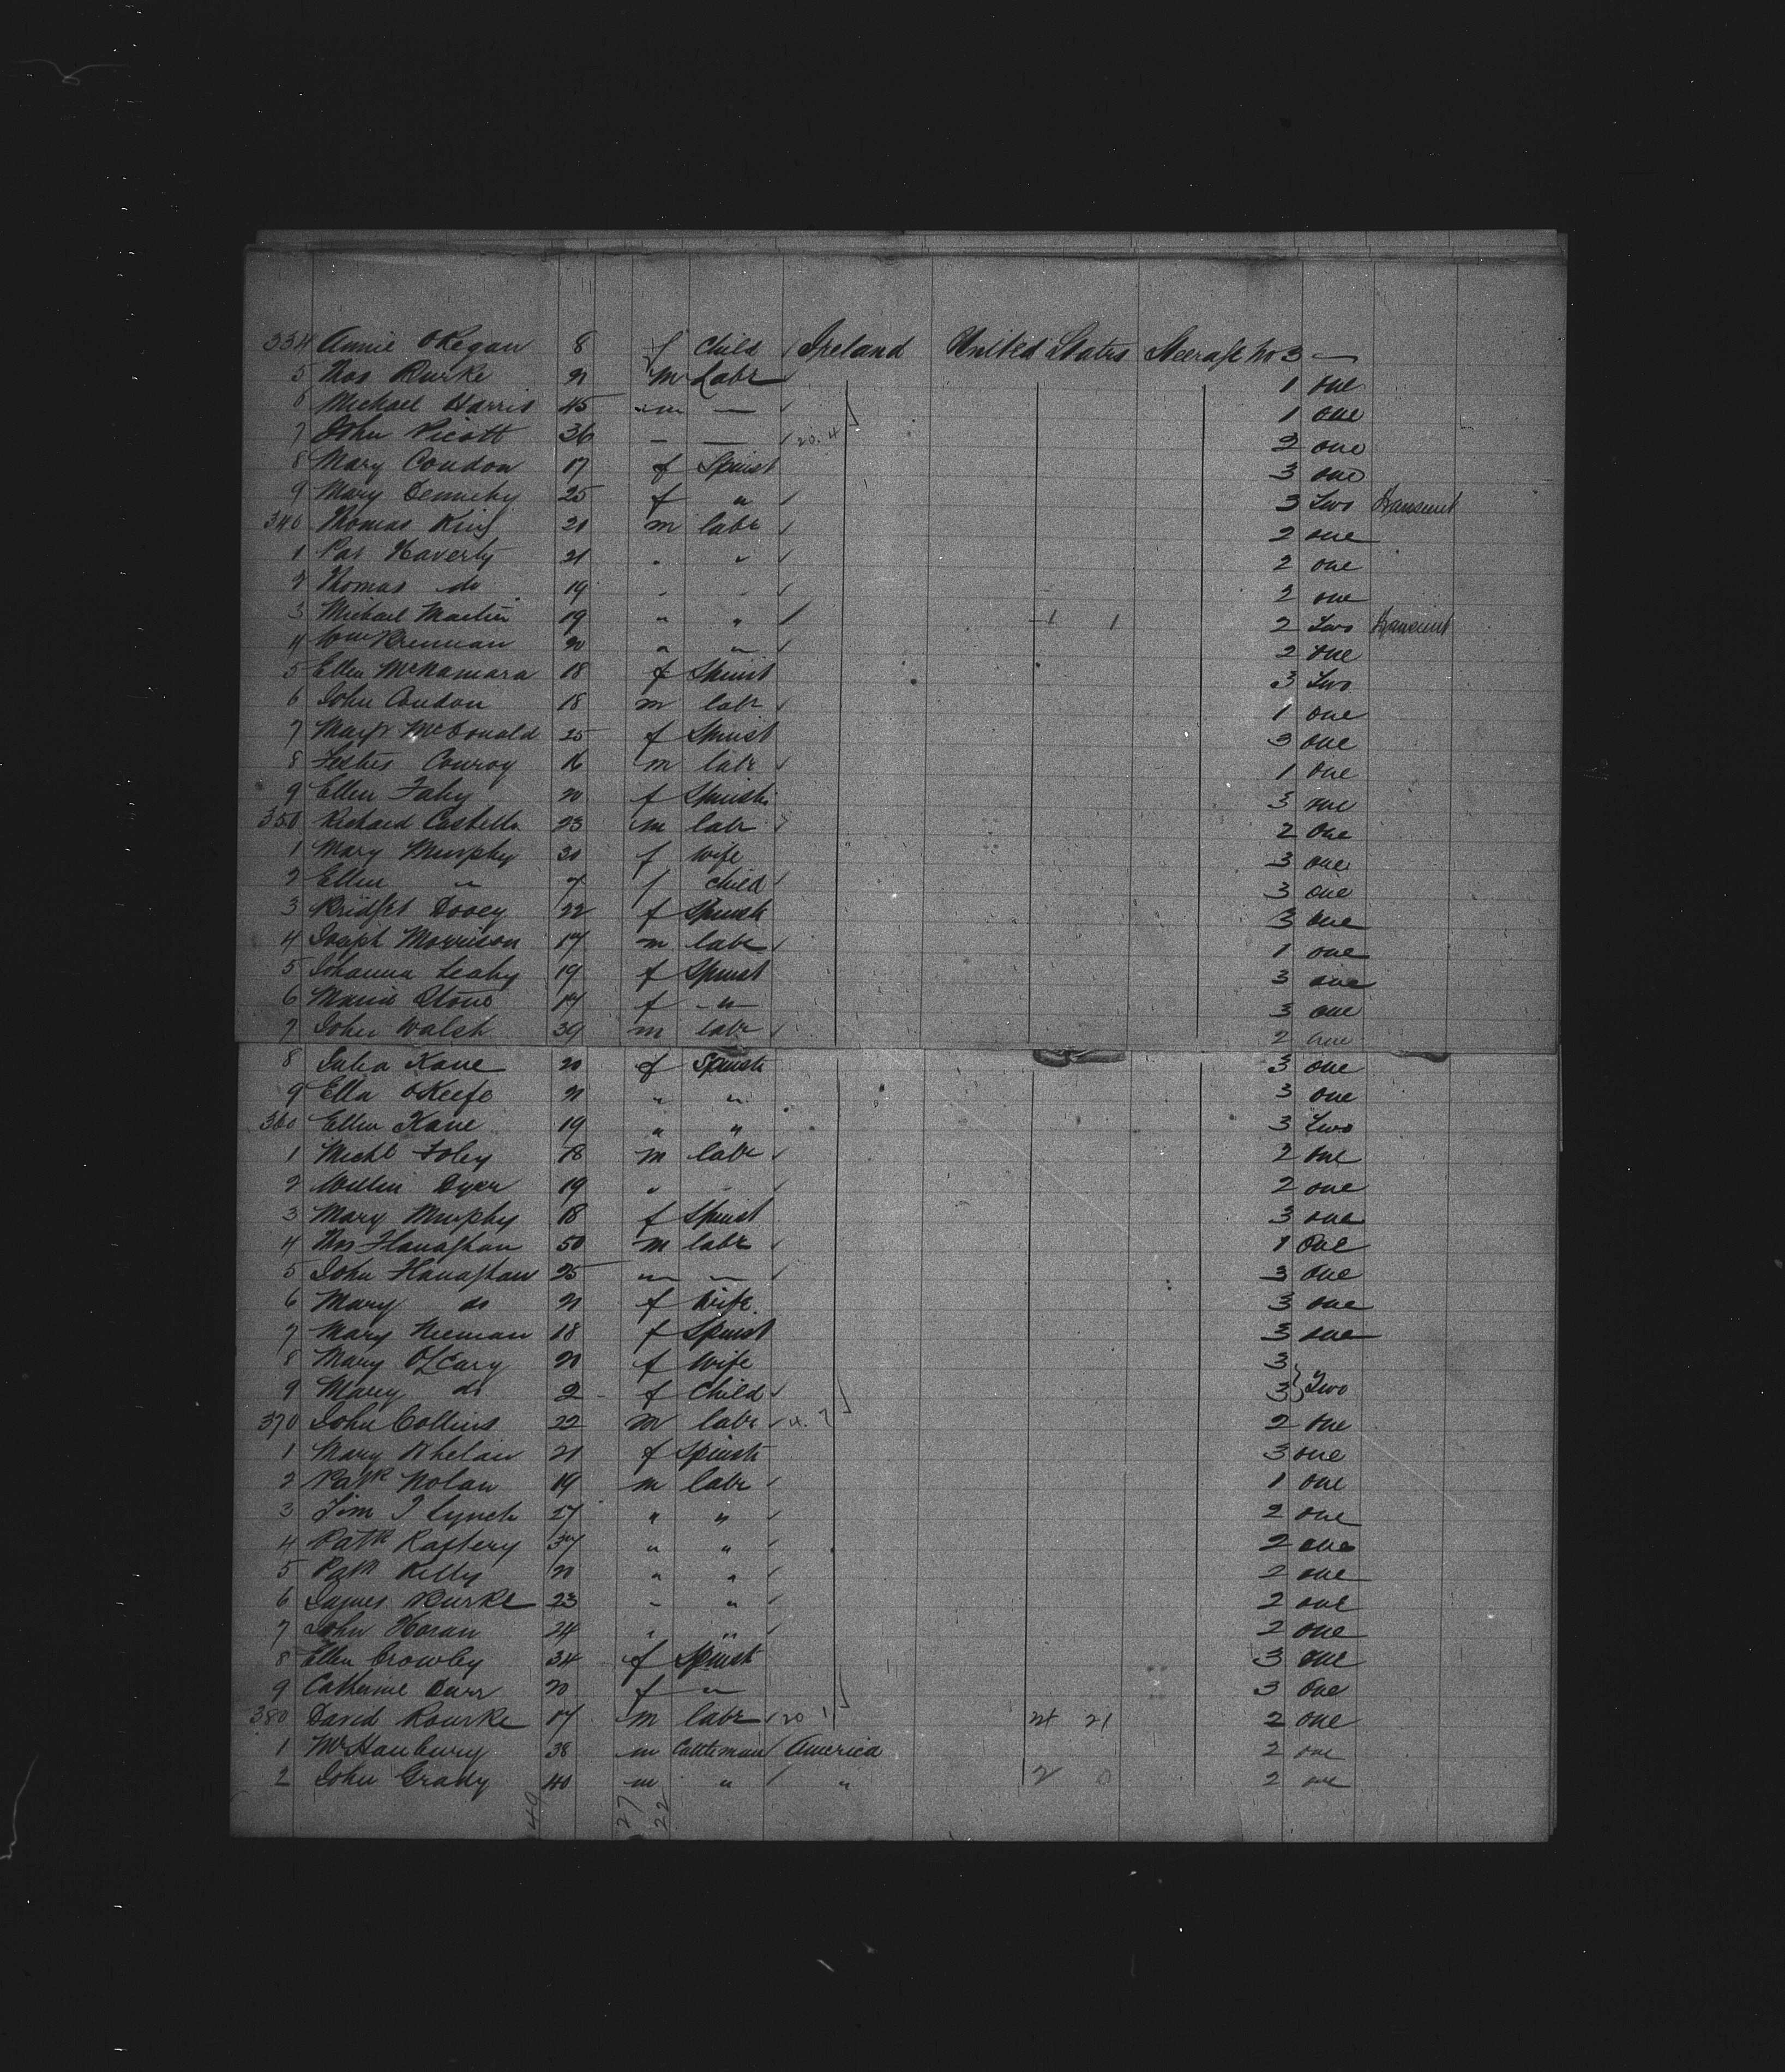 334 Annie OKegan 8 f Child Ireland United States Steerage No 3 —
5 Thos Burke 21 m Labr 1 one
6 Michael Harris 45 " m — 1 one
7 John Picott 36 — — 20. 4 2 one
8 Mary Condon 17 f Spinst 3 one
9 Mary Dennehy 25 f " 3 Two Transient
340 Thomas King 20 m labr 2 one
1 Pat Haverty 21 " " 2 one
2 Thomas do 19 " " 2 one
3 Michael Martin 19 " " 1 1 2 Two Transient
4 Wm Brennan 20 " " 2 one
5 Ellen McNamara 18 f Spinst 3 Two
6 John Condon 18 m labr 1 one
7 Mary McDonald 25 f Spinst 3 one
8 Festus Conroy 16 m labr 1 one
9 Ellen Fahy 20 f Spinstr 3 one
350 Richard Castello 23 m labr 2 one
1 Mary Murphy 30 f wife 3 one
2 Ellen " 7 f child 3 one
3 Bridget Dooey 22 f Spinstr 3 one
4 Joseph Morrison 17 m labr 1 one
5 Johanna Leahy 19 f Spinst 3 one
6 Stone 17 f — " — 3 one
7 John Walsh 39 m labr 2 one
8 Julia Kane 20 f Spinstr 3 one
9 Ella OKeefe 21 " " 3 one
360 Ellen Kane 19 " " 3 Two
1 Michl Foley 18 m labr 2 one
2 Dyer 19 " " 2 one
3 Mary Murphy 18 f Spinst 3 one
4 Thos Flanaghan 50 m labr 1 one
5 John Flanaghan 25 — — 3 one
6 Mary do 21 f wife 3 one
7 Mary 18 f Spinst 3 one
8 Mary OLeary 21 f wife 3
9 Mary do 2 f Child 3 } Two
370 John Collins 22 m labr 4. 7 2 one
1 Mary Whelan 21 f Spinstr 3 one
2 Patk Nolan 19 m labr 1 one
3 Tim J Lynch 27 " " 2 one
4 Patk Raftery 37 " " 2 one
5 Patk Kelly 21 " " 2 one
6 James Burke 23 " " 2 one
7 John Horan 24 " " 2 one
8 Ellen Crowley 34 f Spinst 3 one
9 Catherine Durr 20 f — " 3 one
380 David Rourke 17 m labr 20 1 24 21 2 one
1 Wm Hanbury 38 m Cattleman America 2 one
2 John Grady 40 m " " 2 0 2 one
49 27 22